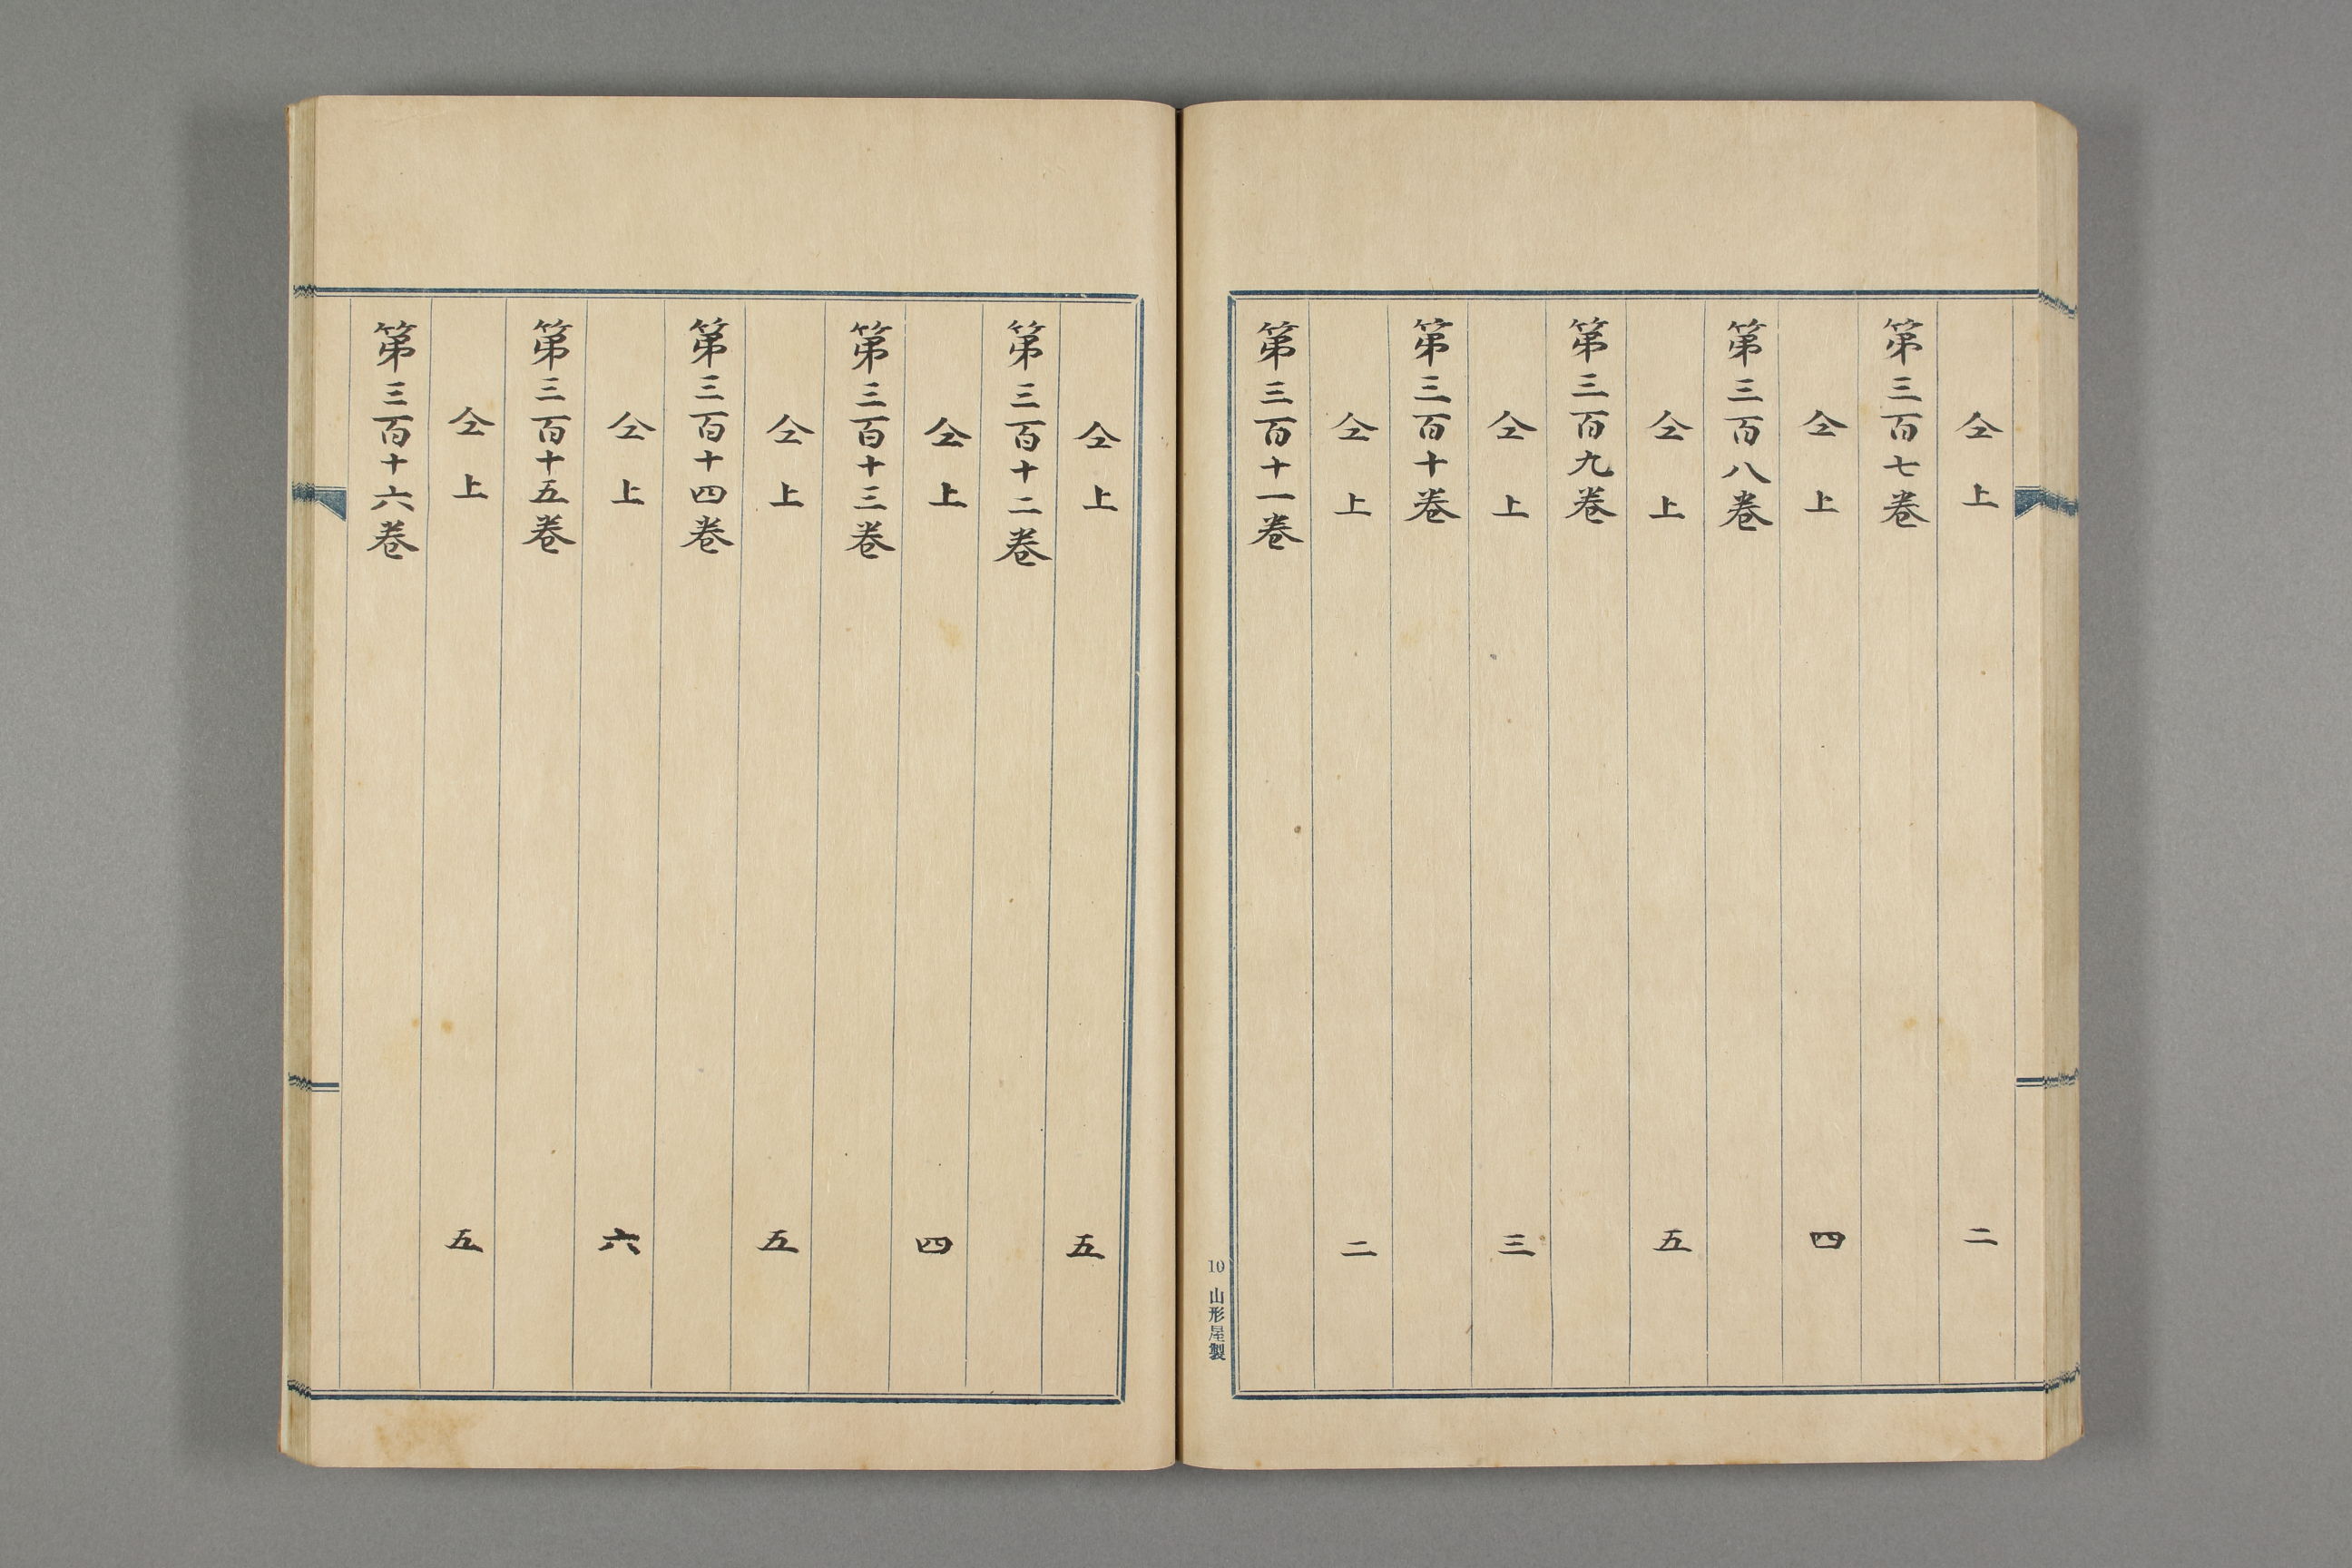 仝上 二
第三百七巻
仝上 四
第三百八巻
仝上 五
第三百九巻
仝上 三
第三百十巻
仝上 二
第三百十一巻
10 山形屋製
仝上 五
第三百十二巻
仝上 四
第三百十三巻
仝上 五
第三百十四巻
仝上 六
第三百十五巻
仝上 五
第三百十六巻